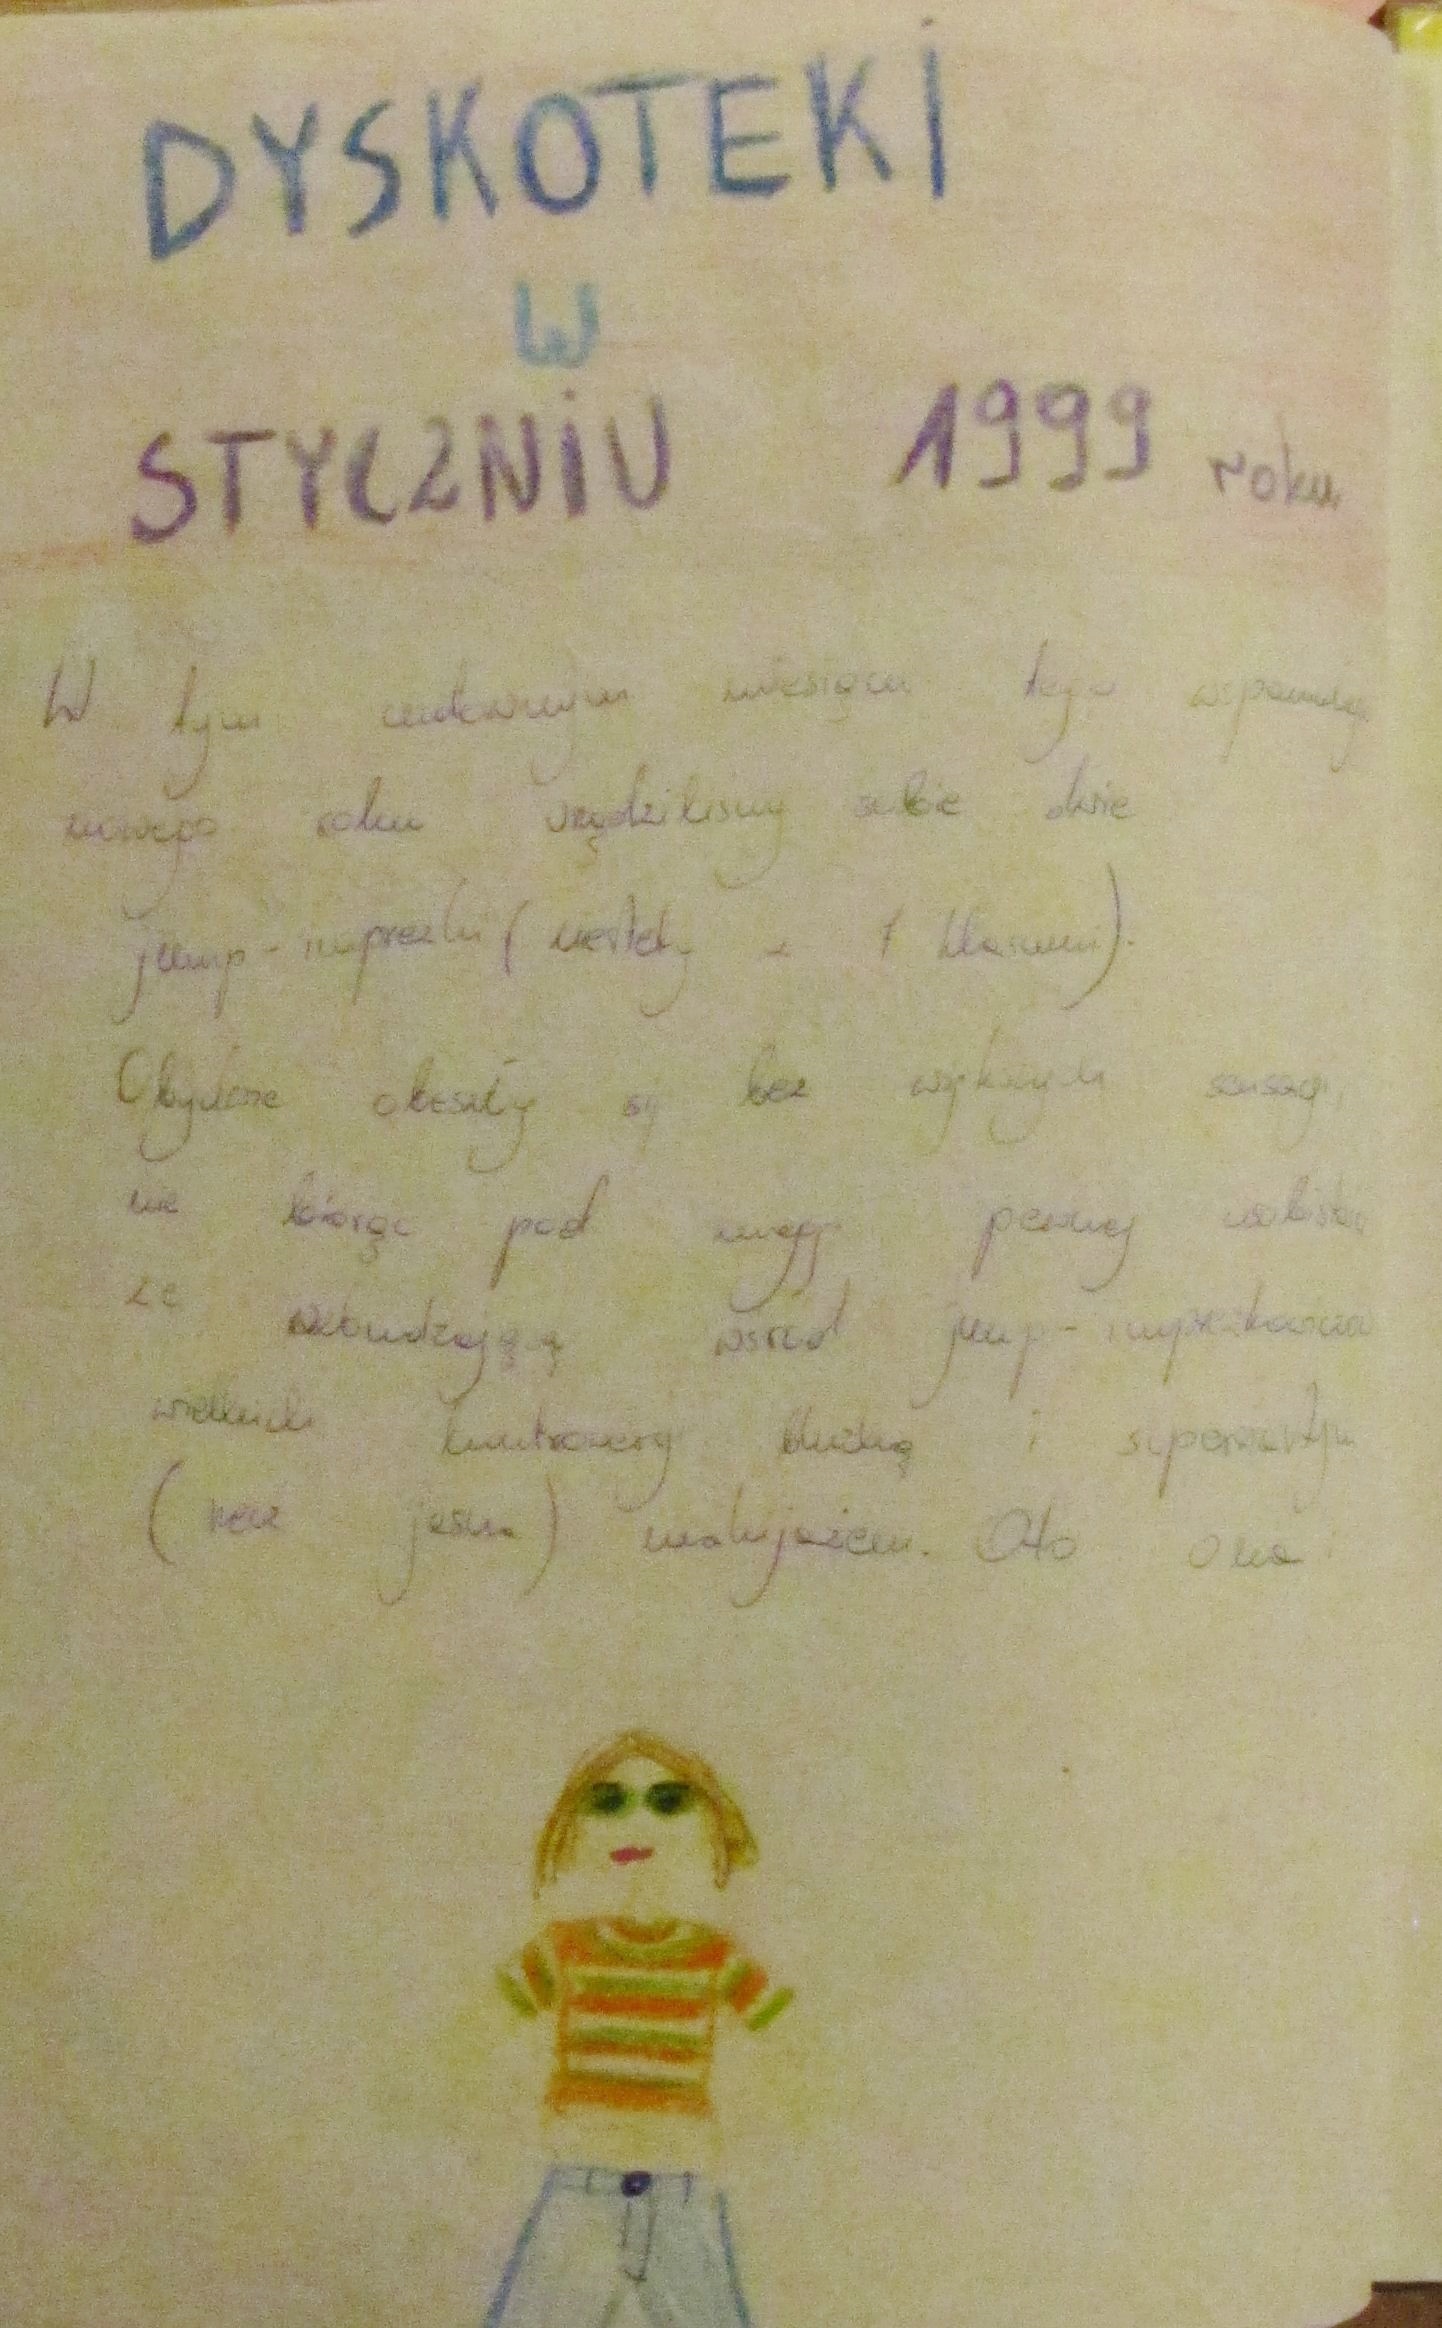 DYSKOTEKI
W
STYCZNIU 1999 roku
W tym cudownym miesiącu tego wspaniałego
nowego roku urządziliśmy sobie dwie
jump-imprezki (niestety z 7 klasami).
Obydwie obeszły się bez większych sensacji,
nie biorąc pod uwagę pewnej osobistości
ze wzbudzającą wśród jump-imprezkowiczów
wielkich kontrowersji bluzką i supermodnym
( rzecz jasna) makijażem. Oto ona: